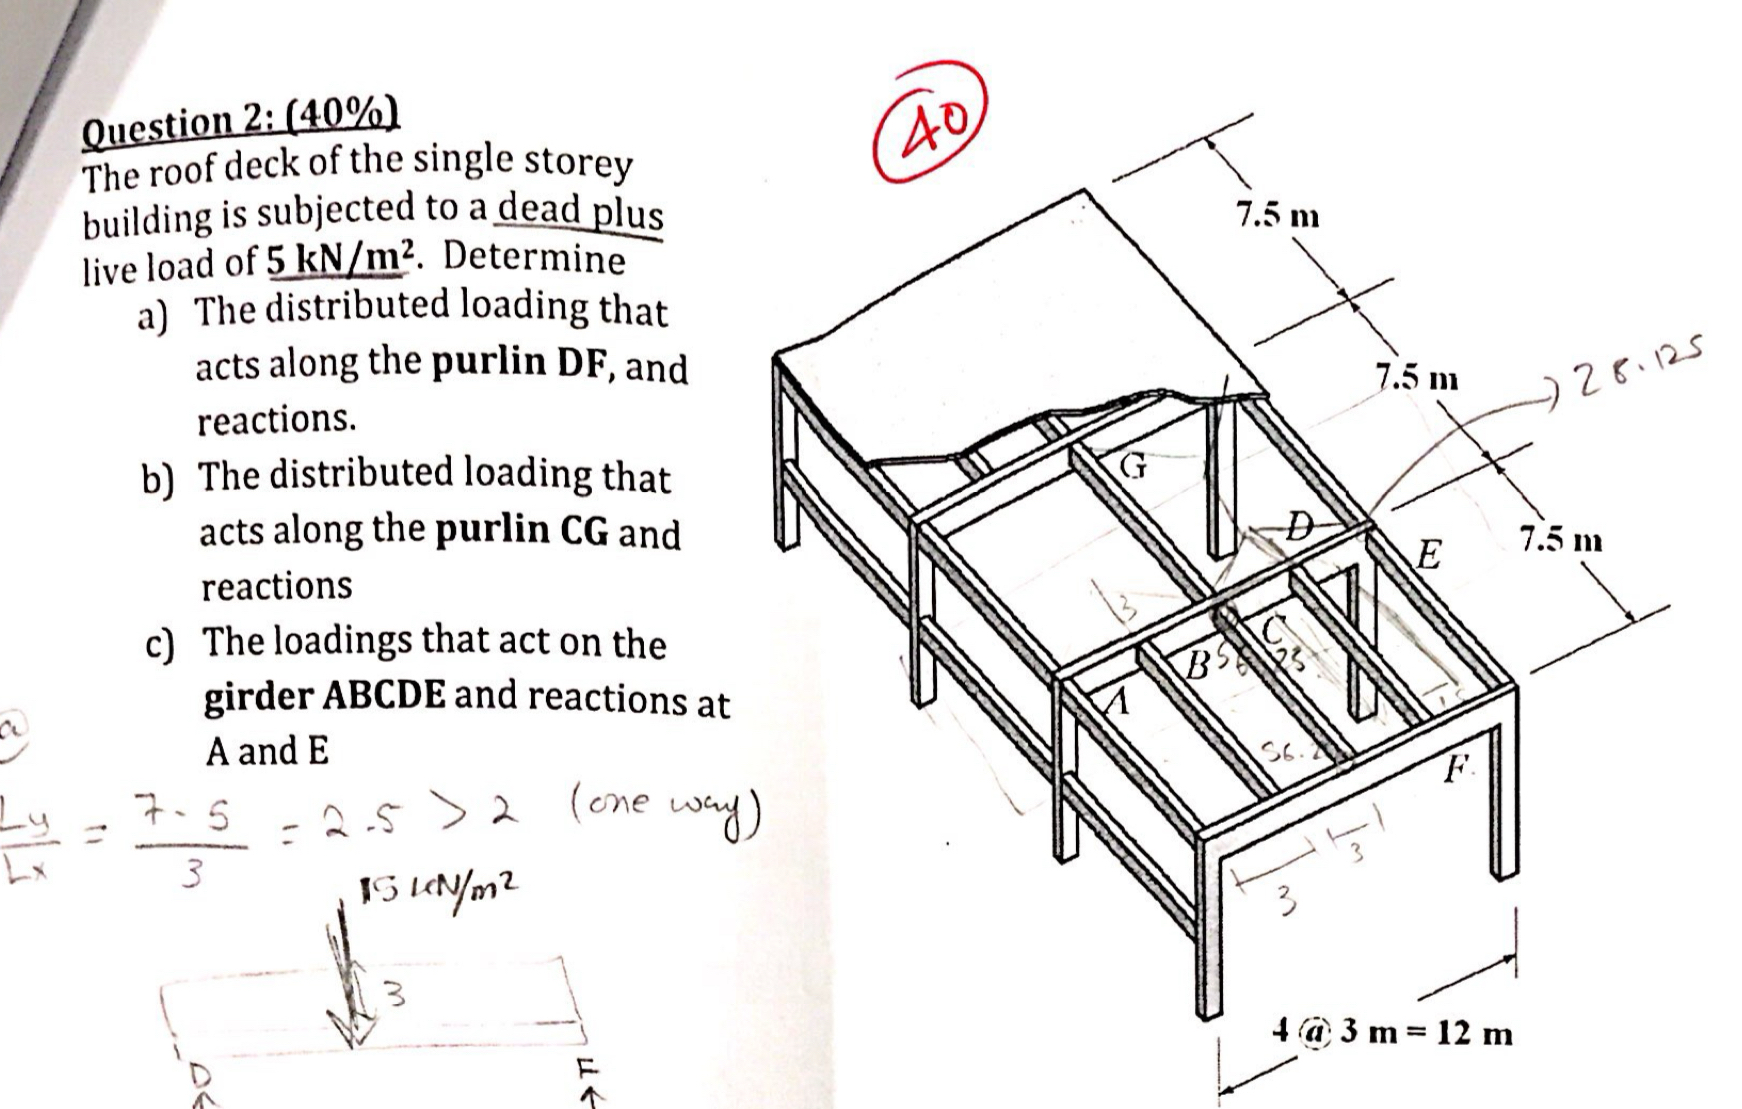 40
Question 2: (40%)
The roof deck of the single storey
building is subjected to a dead plus
live load of 5 kN/m². Determine
a) The distributed loading that
acts along the purlin DF, and
reactions.
b) The distributed loading that
acts along the purlin CG and
reactions
c) The loadings that act on the
girder ABCDE and reactions at
A and E
a
Ly/Lx = 7.5/3 = 2.5 > 2 (one way)
15 kN/m²
3
D
F
7.5 m
7.5 m
28.125
7.5 m
G
D
E
3
C
B
56.25
A
F
3
3
4 @ 3 m = 12 m